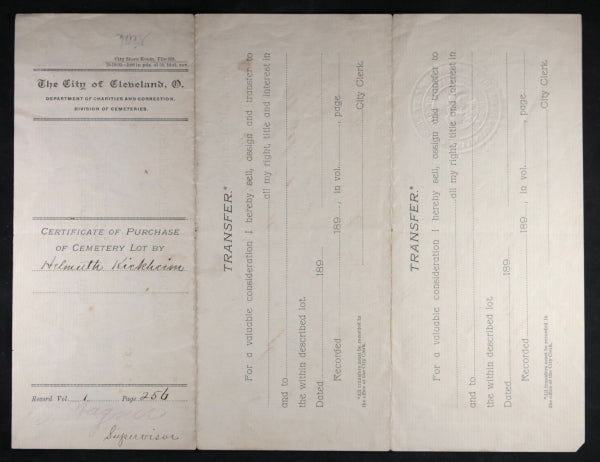 City Store Room, File 323.
The City of Cleveland, O.
DEPARTMENT OF CHARITIES AND CORRECTION,
DIVISION OF CEMETERIES.
CERTIFICATE OF PURCHASE
OF CEMETERY LOT BY
Helmuth Kirkheim
Record Vol. 1 Page 256
Supervisor
TRANSFER.*
For a valuable consideration I hereby sell, assign and transfer to
all my right, title and interest in
and to
the within described lot.
Dated 189
Recorded 189 , in vol. , page
City Clerk.
*All transfers must be recorded in
the office of the City Clerk.
TRANSFER.*
For a valuable consideration I hereby sell, assign and transfer to
all my right, title and interest in
and to
the within described lot.
Dated 189
Recorded 189 , in vol. , page
City Clerk.
*All transfers must be recorded in
the office of the City Clerk.